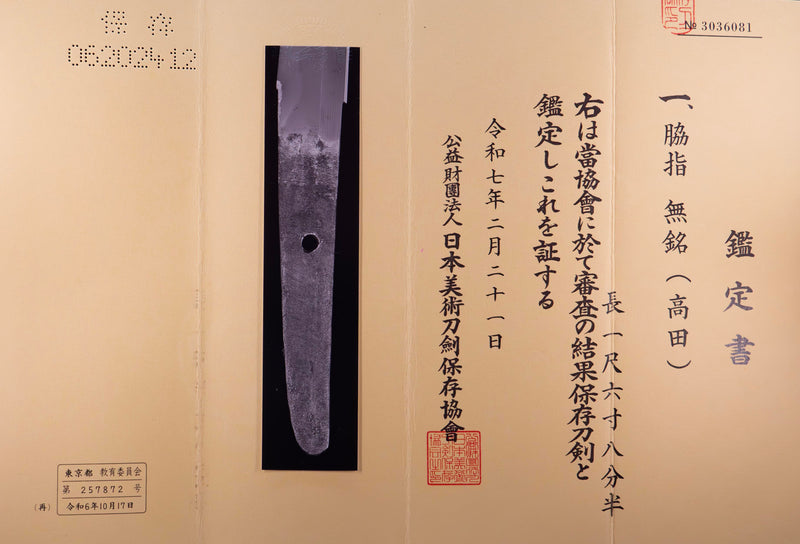 № 3036081
鑑定書
一、脇指 無銘（高田）
長一尺六寸八分半
右は當協會に於て審査の結果保存刀剣と
鑑定しこれを証する
令和七年二月二十一日
公益財團法人 日本美術刀劍保存協會
保存
06202412
東京都 教育委員会
第 257872 号
令和6年10月17日
（再）